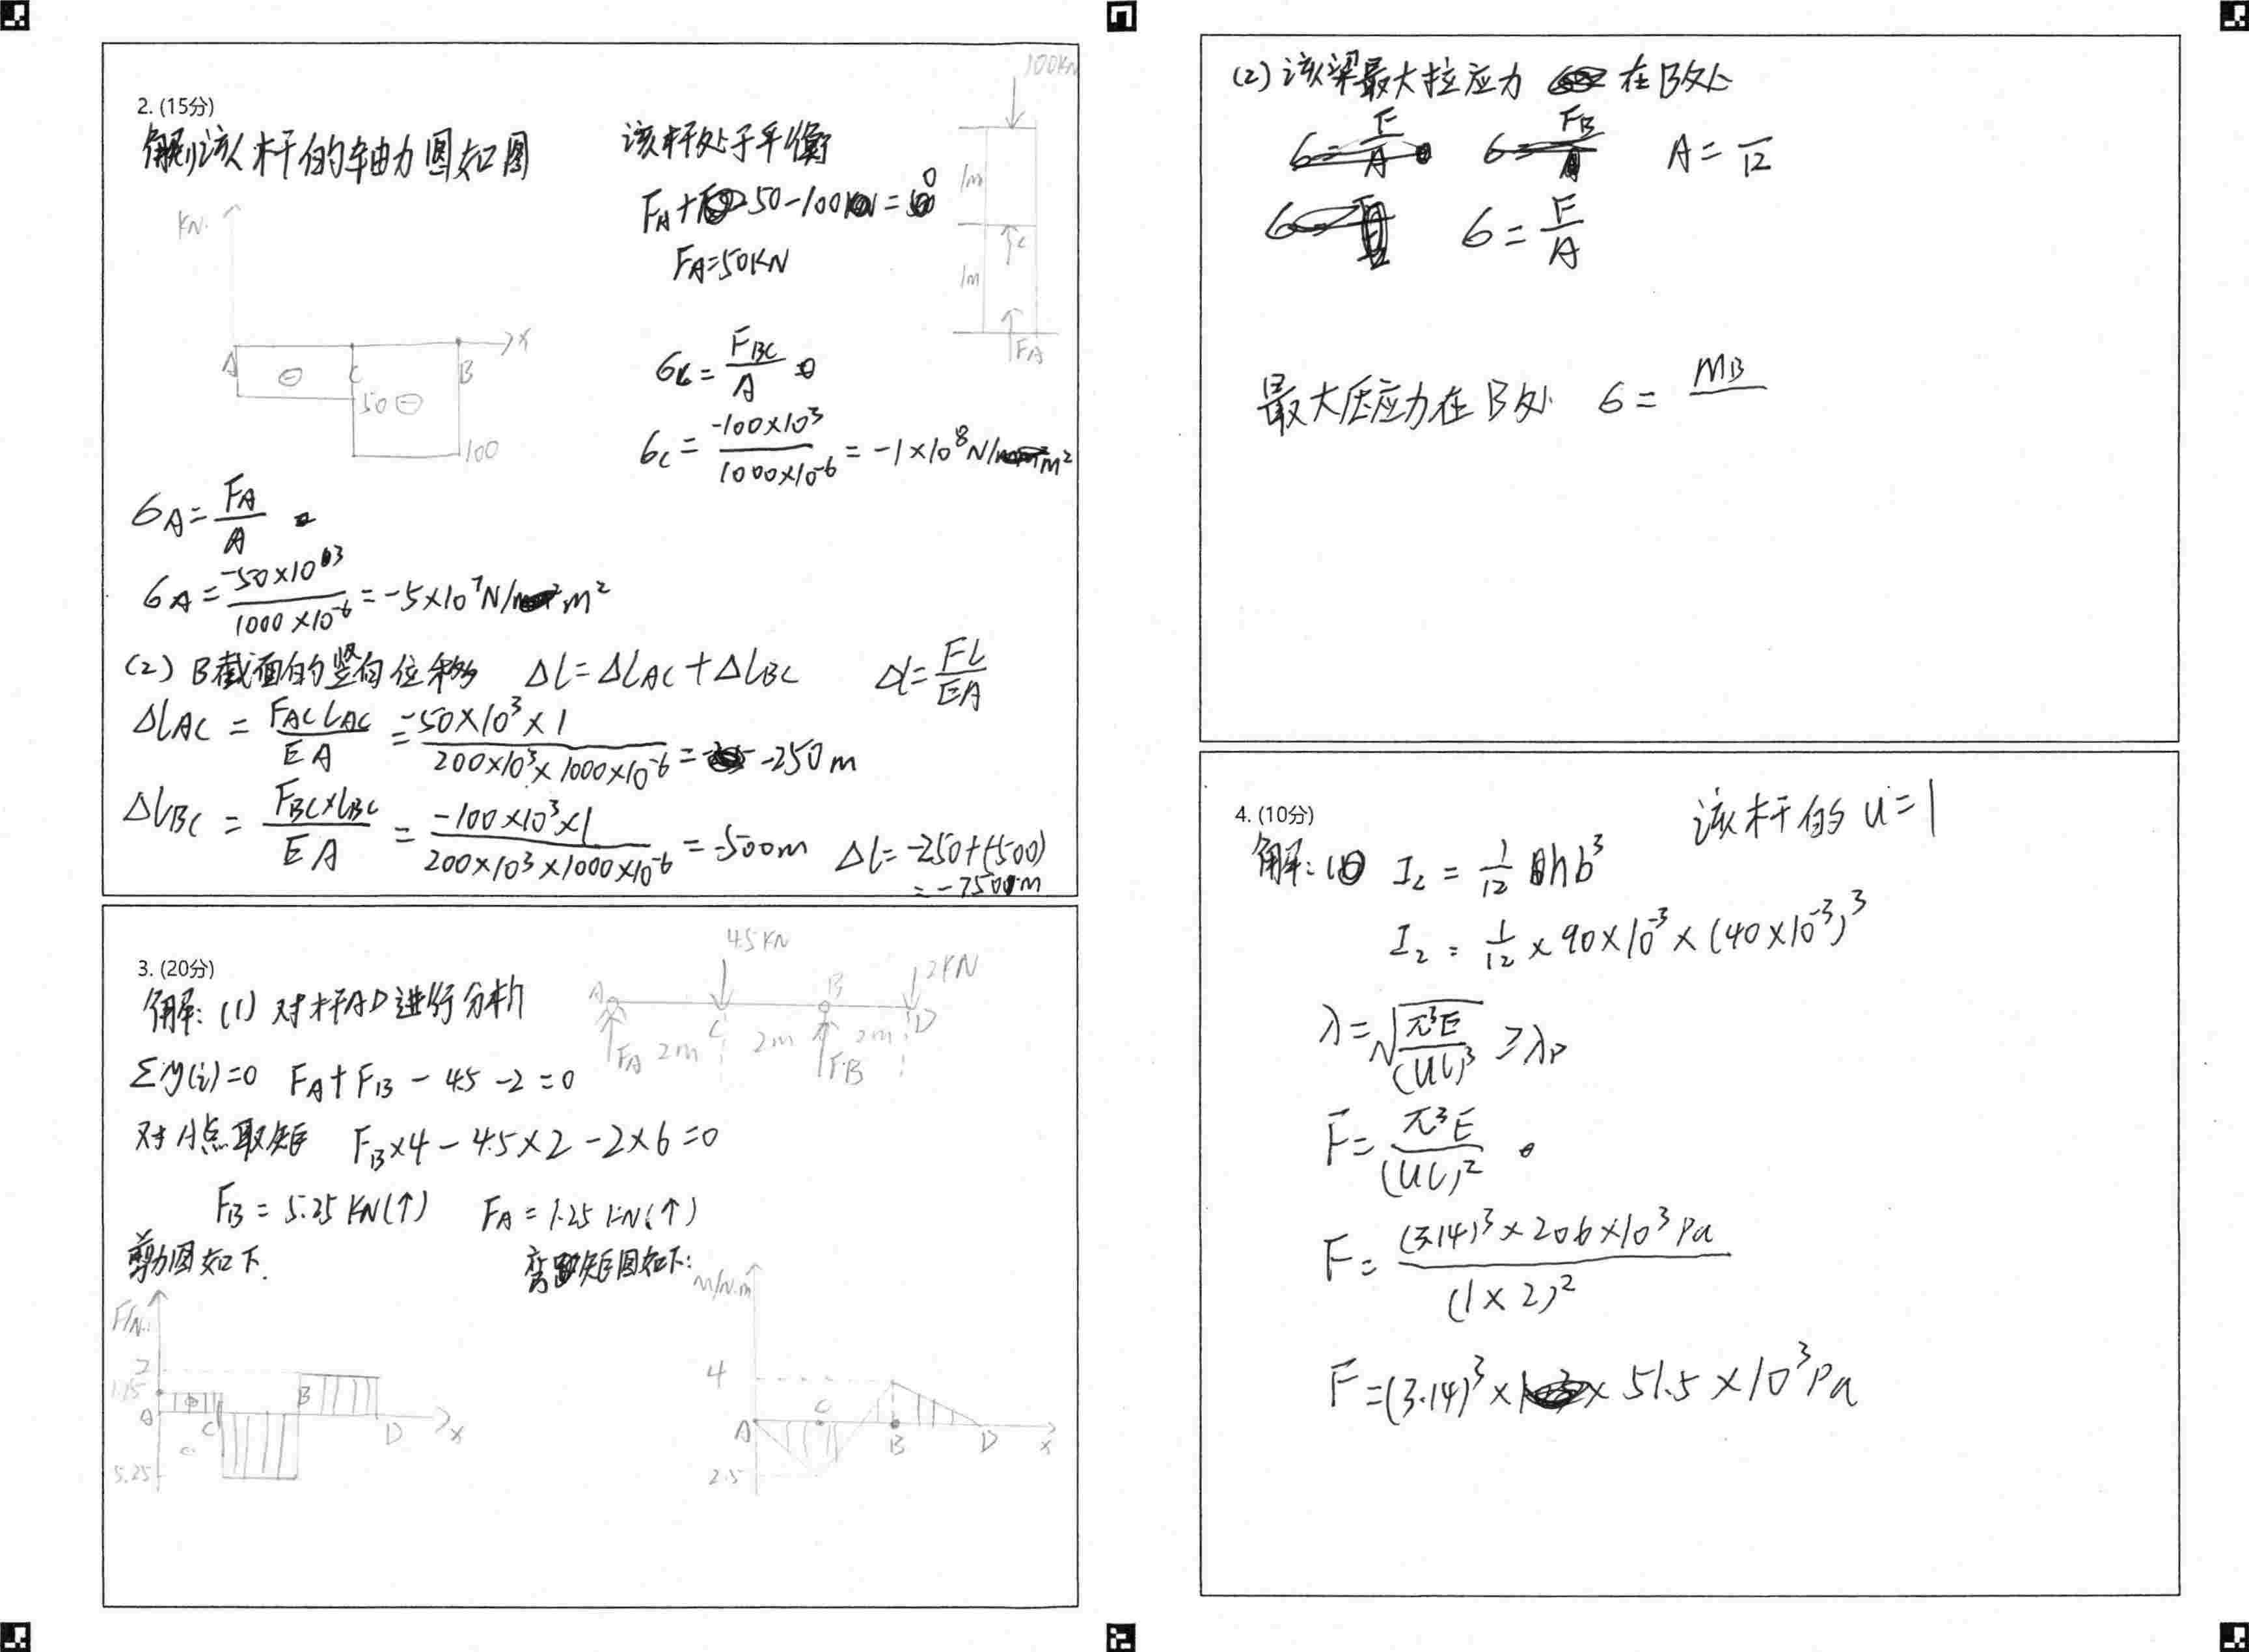 2. (15分)
解:该杆的轴力图如图
KN.
A
C
B
x
⊖
50
⊖
100
该杆处于平衡
F_A+50-100=0
F_A=50KN
100KN
1m
C
1m
F_A
σ_A=F_A/A
σ_A=-50×10^3/1000×10^-6=-5×10^7N/m²
σ_C=F_BC/A
σ_C=-100×10^3/1000×10^-6=-1×10^8N/m²
(2) B截面的竖向位移 Δl=Δl_AC+Δl_BC Δl=FL/EA
Δl_AC=F_AC L_AC/EA=-50×10^3×1/200×10^3×1000×10^-6=-250m
Δl_BC=F_BC×l_BC/EA=-100×10^3×1/200×10^3×1000×10^-6=-500m Δl=-250+(-500)
=-750m
3. (20分)
解:(1) 对杆AD进行分析
4.5KN
2KN
A
C
B
D
F_A
2m
2m
F_B
2m
Σy(i)=0 F_A+F_B-4.5-2=0
对A点取矩 F_B×4-4.5×2-2×6=0
F_B=5.25KN(↑) F_A=1.25KN(↑)
剪力图如下.
弯矩图如下:
F/N
2
1.25
A
C
B
D
x
5.25
M/N.m
4
A
C
B
D
x
2.5
(2) 该梁最大拉应力在B处
A=/12
σ=F/A
最大压应力在B处 σ=M_B/
4. (10分)
该杆的u=1
解:(1) I_z=1/12 hb³
I_z=1/12×90×10^-3×(40×10^-3)^3
λ=√(π³E/(ul)³)≥λ_P
F=π³E/(ul)²
F=(3.14)³×206×10³Pa/(1×2)²
F=(3.14)³×51.5×10³Pa